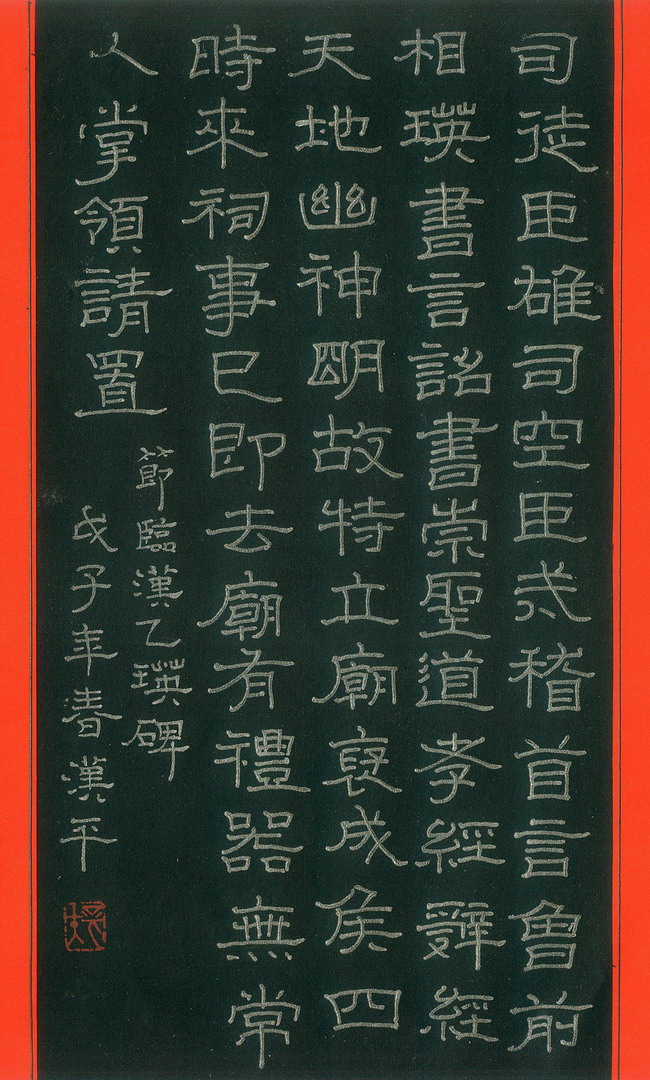 司徒臣雄司空臣戒稽首言魯前
相瑛書言詔書崇聖道孝經辭經
天地幽神明故特立廟褒成侯四
時來祠事已即去廟有禮器無常
人掌領請置
節臨漢乙瑛碑
戊子年春漢平